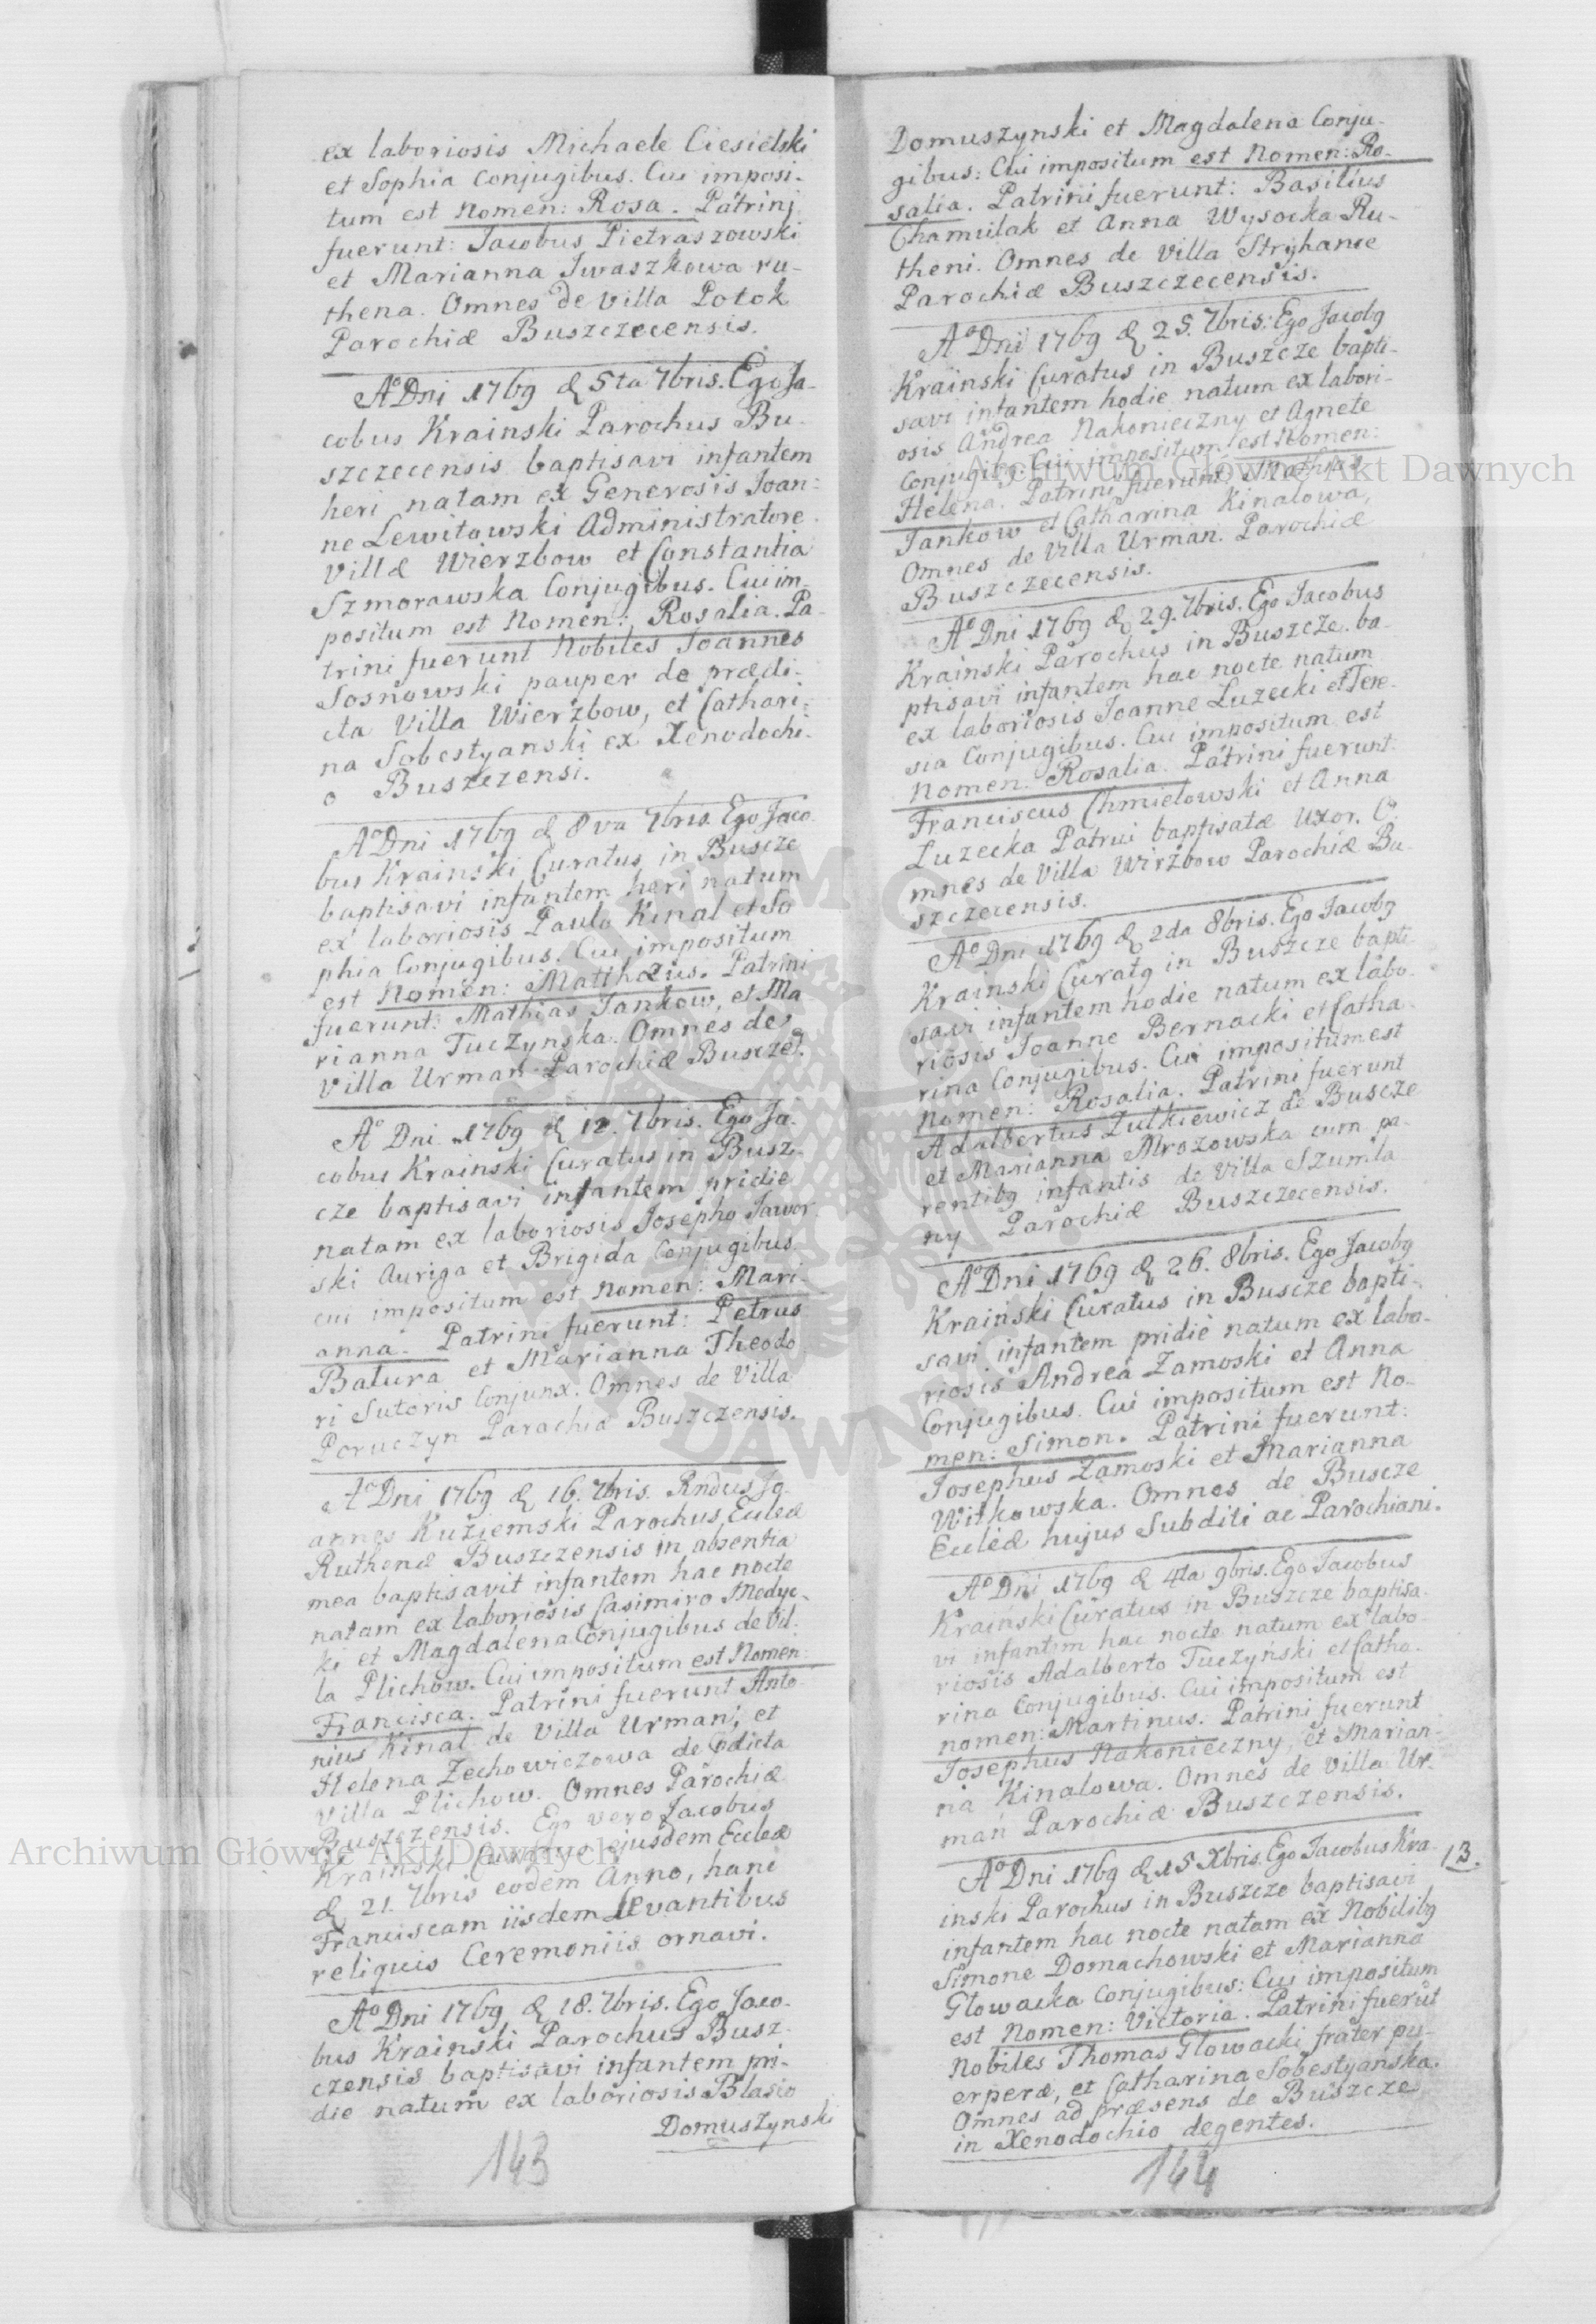 ex laboriosis Michaele Ciesielski
et Sophia Conjugibus. Cui imposi-
tum est Nomen: Rosa. Patrinj
fuerunt: Jacobus Pietraszowski
et Marianna Iwaszkowa ru-
thena. Omnes de Villa Potok
Parochiæ Buszczecensis.
Aº Dni 1769 d 5ta 7bris. Ego Ja-
cobus Krainski Parochus Bu-
szczecensis baptisavi infantem
heri natam ex Generosis Joan:
ne Lewitowski Administratore
Villæ Wierzbow et Constantia
Szmorawska Conjugibus. Cui im-
positum est Nomen: Rosalia. Pa-
trini fuerunt Nobiles Joannes
Sosnowski pauper de prædi-
cta Villa Wierzbow, et Cathari:
na Sobestyanski ex Xenodochi-
o Buszczensi.
Aº Dni 1769 d 8va 7bris. Ego Jaco
bus Krainski Curatus in Buscze
baptisavi infantem heri natum
ex laboriosis Paulo Kinal et So
phia Conjugibus. Cui impositum
est Nomen: Matthæus. Patrini
fuerunt: Mathias Jankow, et Ma
rianna Tuczynska. Omnes de
Villa Urman Parochiæ Buszcze.
Aº Dni 1769 d 12. 7bris. Ego Ja-
cobus Krainski Curatus in Busz-
cze baptisavi infantem pridie
natam ex laboriosis Josepho Jawor
ski Auriga et Brigida Conjugibus
cui impositum est Nomen: Mari-
anna. Patrini fuerunt: Petrus
Batura et Marianna Theodo
ri Sutoris Conjunx. Omnes de Villa
Poruczyn Parachiæ Buszczensis.
Aº Dni 1769 d 16. 7bris. Rndus Jo-
annes Kuziemski Parochus Eccleæ
Ruthenæ Buszczensis in absentia
mea baptisavit infantem hac nocte
natam ex laboriosis Casimiro Medyc-
ki et Magdalena Conjugibus de Vil-
la Plichow. Cui impositum est Nomen:
Francisca. Patrini fuerunt Anto-
nius Kinal de Villa Urmani, et
Helena Zechowiczowa de pdicta
Villa Plichow. Omnes Parochiæ
Buszczensis. Ego vero Jacobus
Krainski Curatus ejusdem Eccleæ
d 21. 7bris eodem Anno, hanc
Franciscam iisdem Levantibus
religuis Ceremoniis ornavi.
Aº Dni 1769 d 18. 7bris. Ego Jaco-
bus Krainski Parochus Busz-
czensis baptisavi infantem pri-
die natum ex laboriosis Blasio
Domuszynski
143
Domuszynski et Magdalena Conju-
gibus: Cui impositum est Nomen: Ro-
salia. Patrini fuerunt: Basilius
Chamulak et Anna Wysocka Ru-
theni. Omnes de Villa Stryhance
Parochiæ Buszczecensis.
Aº Dni 1769 d 25. 7bris: Ego Jacobg
Krainski Curatus in Buszcze bapti-
savi infantem hodie natum ex labori-
osis Andrea Nakonieczny et Agnete
Conjugibg. Cui impositum est Nomen:
Helena. Patrini fuerunt Mathias
Jankow et Catharina Kinalowa,
Omnes de Villa Urman. Parochiæ
Buszczecensis.
Aº Dni 1769 d 29. 7bris. Ego Jacobus
Krainski Parochus in Buszcze ba-
ptisavi infantem hac nocte natum
ex laboriosis Joanne Luzecki et Tere-
sia Conjugibus. Cui impositum est
Nomen: Rosalia. Patrini fuerunt:
Franciscus Chmielowski et Anna
Luzecka Patrui baptisatæ Uxor. O-
mnes de Villa Wirzbow Parochiæ Bu-
szczecensis.
Aº Dni 1769 d 2da 8bris. Ego Jacobg
Krainski Curatg in Buszcze bapti-
savi infantem hodie natum ex labo-
riosis Joanne Bernacki et Catha-
rina Conjugibus. Cui impositum est
Nomen: Rosalia. Patrini fuerunt
Adalbertus Zulkiewicz de Buscze
et Marianna Mrozowska cum pa-
rentibg infantis de Villa Szumla
ny Parochiæ Buszczecensis.
Aº Dni 1769 d 26. 8bris. Ego Jacobg
Kraiński Curatus in Buscze bapti-
savi infantem pridie natum ex labo-
riosis Andrea Zamoski et Anna
Conjugibus. Cui impositum est No-
men: Simon. Patrini fuerunt:
Josephus Zamoski et Marianna
Witkowska. Omnes de Buscze
Eccleæ hujus Subditi ac Parochiani.
Aº Dni 1769 d 4ta 9bris. Ego Jacobus
Kraiński Curatus in Buszcze baptisa-
vi infantem hac nocte natum ex labo-
riosis Adalberto Tuczyński et Catha-
rina Conjugibus. Cui impositum est
nomen: Martinus. Patrini fuerunt
Josephus Nakonieczny, et Marian-
na Kinalowa. Omnes de Villa Ur-
mań Parochiæ Buszczensis.
Aº Dni 1769 d 15 Xbris. Ego Jacobus Kra-
inski Parochus in Buszcze baptisavi
infantem hac nocte natam ex Nobilibg
Simone Domachowski et Marianna
Glowacka Conjugibus: Cui impositum
est Nomen: Victoria. Patrini fuerūt
Nobiles Thomas Glowacki frater pu-
erperæ, et Catharina Sobestyańska.
Omnes ad præsens de Buszcze
in Xenodochio degentes.
13.
144
Archiwum Główne Akt Dawnych
Archiwum Główne Akt Dawnych